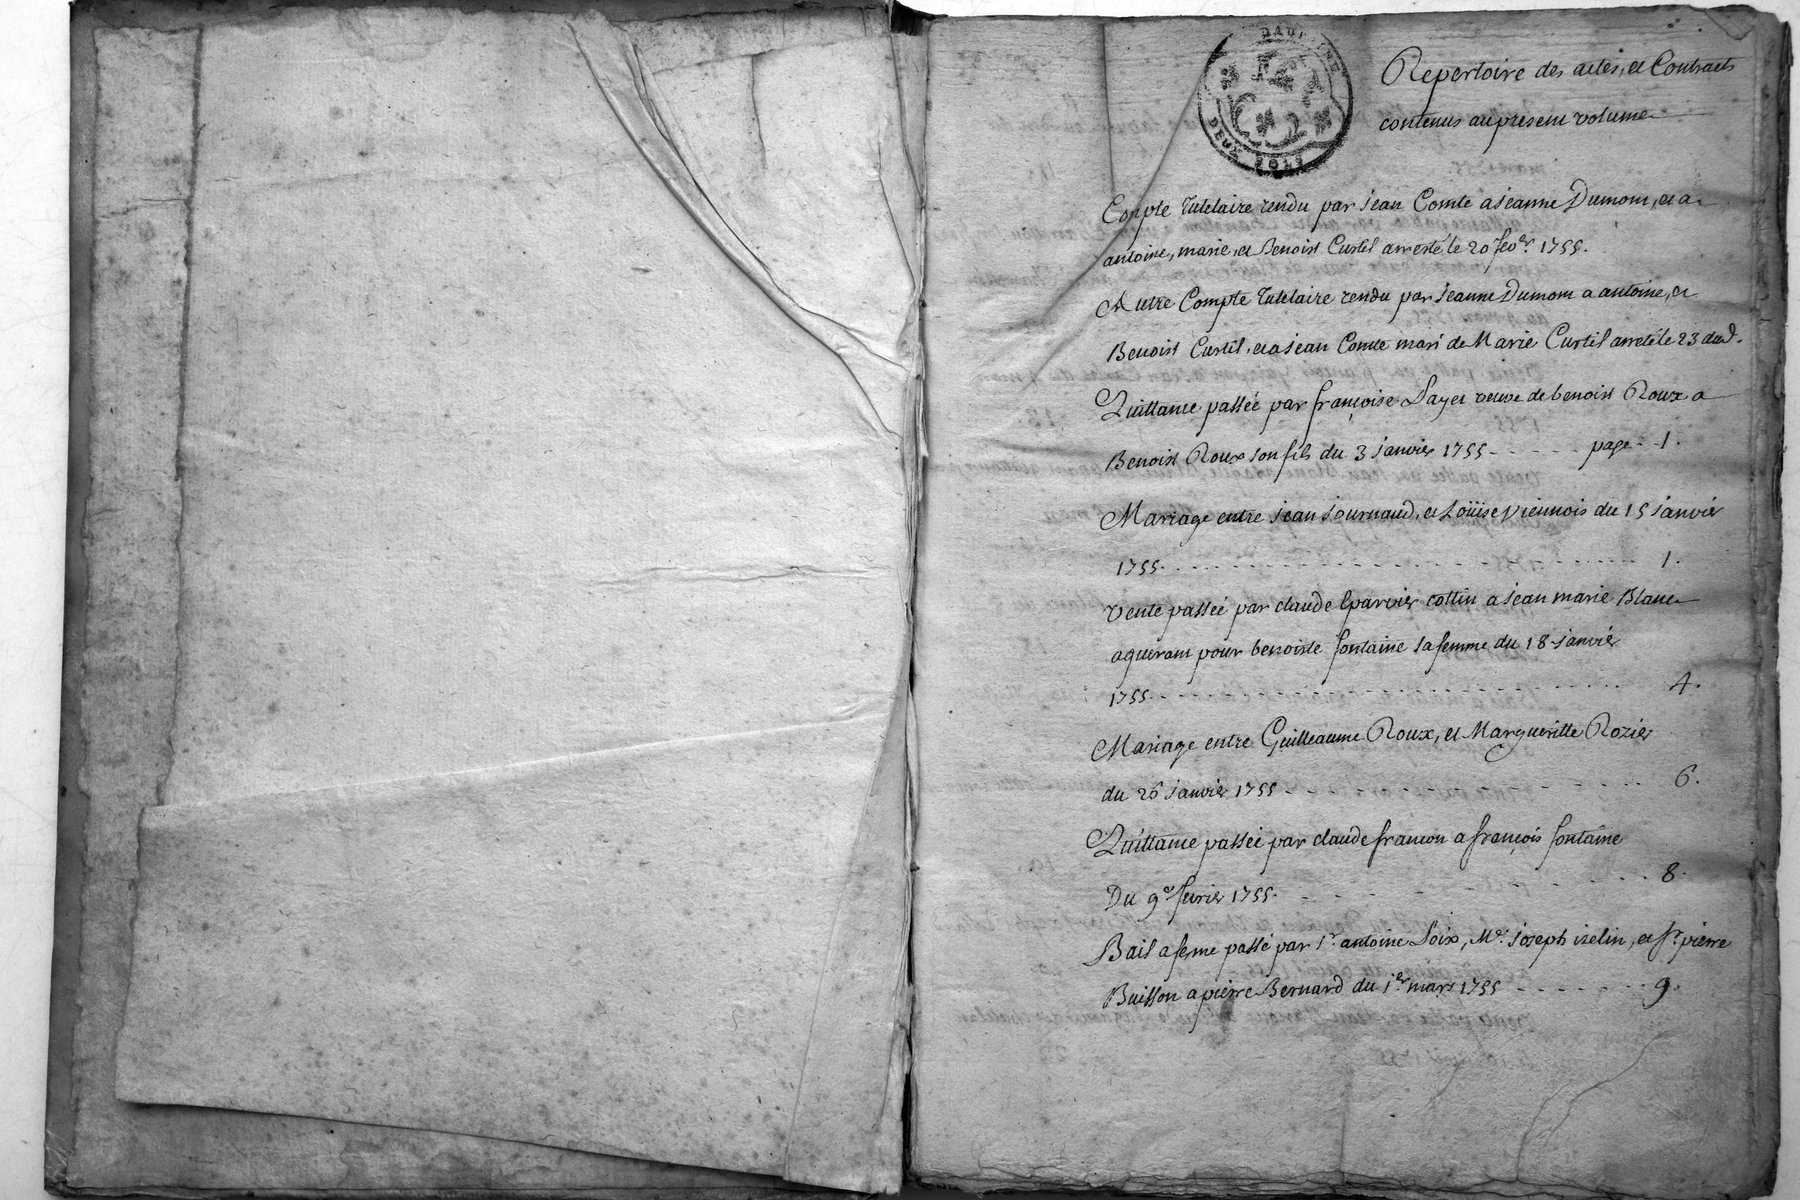 DAUPHINE
DEUX SOLS
Repertoire des actes, et Contracts
contenus au present volume
Compte tutelaire rendu par jean Comte a jeanne Dumont, et a
antoine, marie, et Benoist Curtil arresté le 20 feve.r 1755.
Autre Compte tutelaire rendu par jeanne Dumont a antoine, et
Benoist Curtil, et a jean Comte mari de Marie Curtil arrêté le 23 dud.
Quittance passée par françoise Layet veuve de benoist Roux a
Benoist Roux son fils du 3 janvier 1755 - - - - - page - 1.
Mariage entre jean journaud, et Loüise viennois du 15 janvier
1755. - - - - - - - - - - 1.
Vente passée par claude Eparvier cottin a jean marie Blanc
aquerant pour benoiste fontaine sa femme du 18 janvier
1755 - - - - - - - - - - 4.
Mariage entre Guilleaume Roux, et Margueritte Rozier
du 26 janvier 1755 - - - - - - - - 6.
Quittance passée par claude francon a françois fontaine
Du 9.e fevrier 1755. - - - - - - - 8.
Bail a ferme passé par s.r antoine Loix, M.e joseph izelin, et s.r pierre
Buisson a pierre Bernard du 1.er mars 1755 - - - - - - - 9.